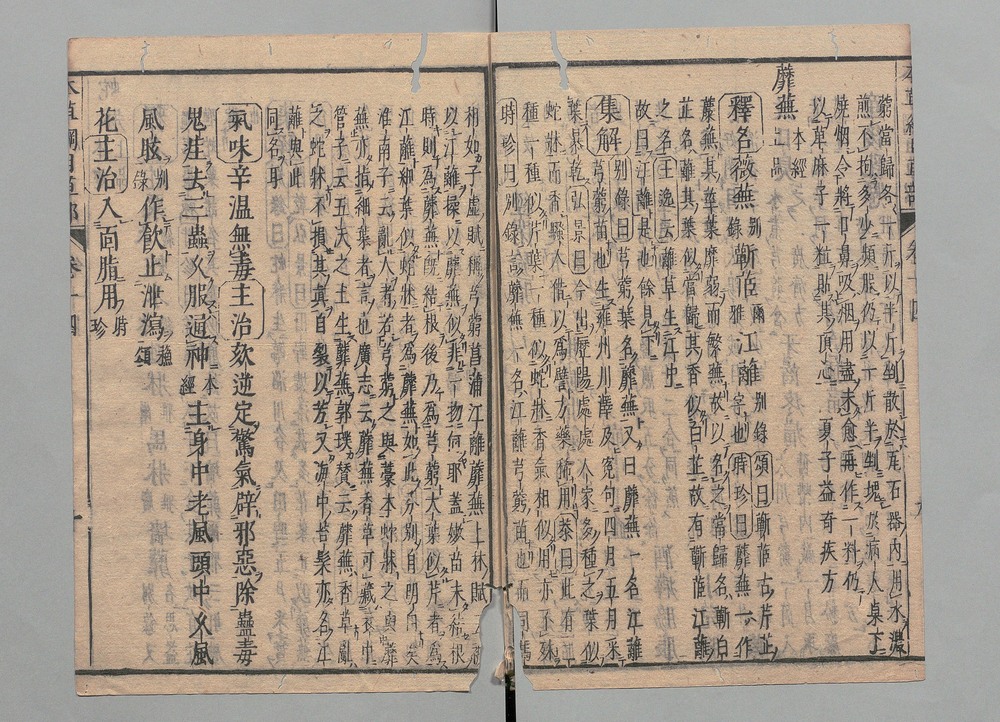 窮當歸各半斤以半斤剉散於瓦石器內用水濃
煎不拘多少頻服仍以一斤半剉塊於病人桌下
燒烟令將口鼻吸烟用盡未愈再作一料仍
以萆麻子一粒貼其頂心夏子益奇疾方
蘼蕪 本經上品
釋名薇蕪別錄蘄茝爾雅江蘺別錄頌曰蘄茝古芹芷字也時珍曰蘼蕪一作
蘪蕪其莖葉靡弱而繁蕪故以名之當歸名蘄白
芷名蘺其葉似當歸其香似白芷故有蘄茝江蘺
之名王逸云蘺草生江中
故曰江蘺是也餘見下
集解別錄曰芎藭葉名蘼蕪又曰蘼蕪一名江蘺
芎藭苗也生雍州川澤及冤句四月五月采
葉暴乾弘景曰今出歷陽處處人家多種之葉似
蛇牀而香騷人借以為譬方藥稀用恭曰此有二
種一種似芹葉一種似蛇牀香氣相似用亦不殊
時珍曰別錄言蘼蕪一名江蘺芎藭苗也而司馬
相如子虛賦稱芎藭菖蒲江蘺蘼蕪上林賦
以江蘺揉以蘼蕪似非一物何耶蓋嫩苗未結根
時則為蘼蕪既結根後乃為芎藭大葉似芹者為
江蘺細葉似蛇牀者為蘼蕪如此分別自明白矣
淮南子云亂人者若芎藭之與藁本蛇牀之與蘼
蕪亦指細葉者言也廣志云蘼蕪香草可藏衣中
管子云五沃之土生蘼蕪郭璞贊云蘼蕪香草亂
之蛇牀不損其真自裂以芳又海中苔髮亦名江
蘺與此
同名耳
氣味辛溫無毒主治欬逆定驚氣辟邪惡除蠱毒
鬼疰去三蟲久服通神本經主身中老風頭中久風
風眩別錄作飲止泄瀉蘇頌
花主治入面脂用時珍